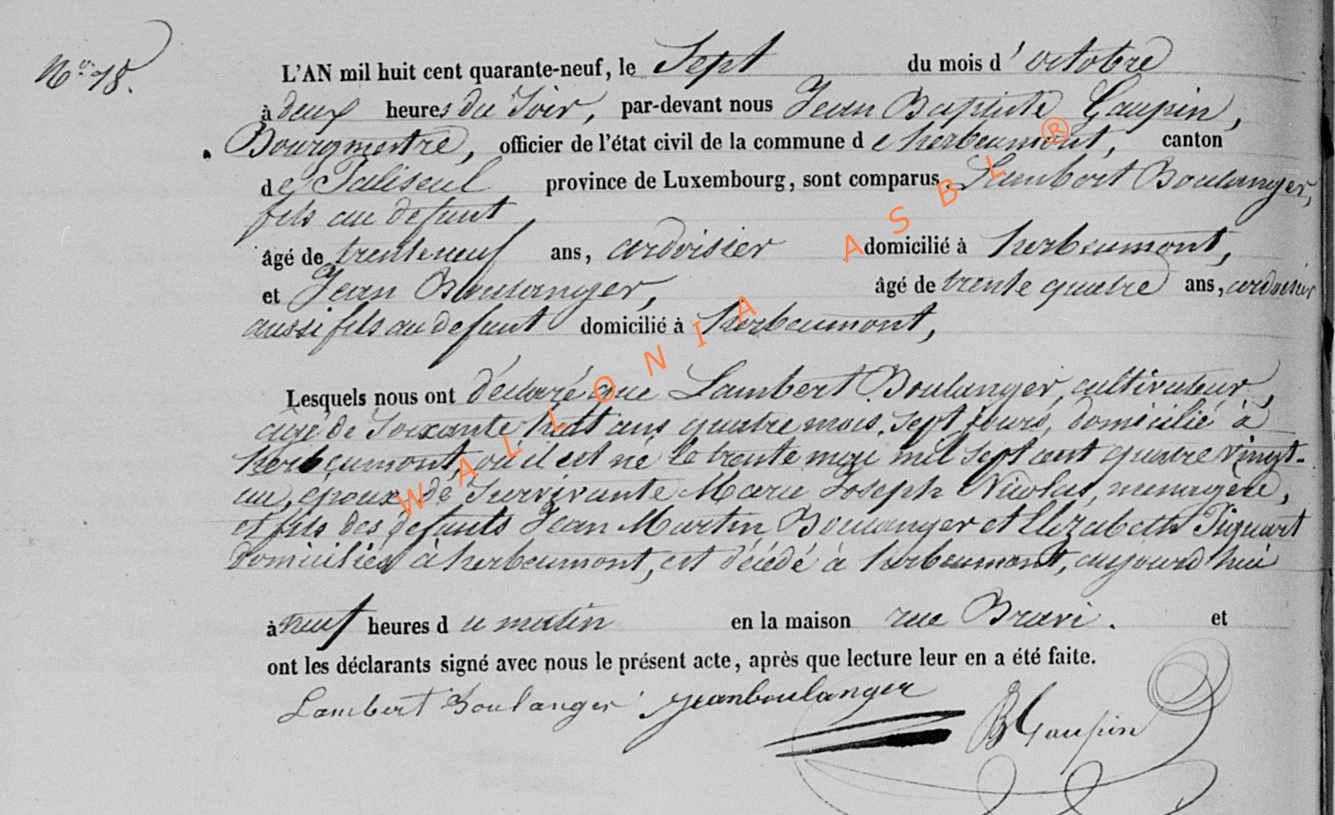 No 18.
L'AN mil huit cent quarante-neuf, le Sept du mois d'octobre
à deux heures du Soir, par-devant nous Jean Baptiste Gaupin,
Bourgmestre, officier de l'état civil de la commune de herbeumont, canton
de Paliseul province de Luxembourg, sont comparus Lambert Boulanger,
fils au defunt
âgé de trente neuf ans, ardoisier domicilié à herbeumont,
et Jean Boulanger, âgé de trente quatre ans, ardoisier
aussi fils au defunt domicilié à herbeumont,
Lesquels nous ont déclaré que Lambert Boulanger, cultivateur,
agé de Soixante huit ans quatre mois, sept jours, domicilié à
herbeumont, où il est né le trente mai mil sept cent quatre vingt-
un, époux de Survivante Marie Joseph Nicolas, menagere,
et fils des defunts Jean Martin Boulanger et Elizabeth Piquart
domiciliés à herbeumont, est décédé à herbeumont, aujourd'hui
à neuf heures du matin en la maison rue Bravi. et
ont les déclarants signé avec nous le présent acte, après que lecture leur en a été faite.
Lambert Boulanger jeanboulanger
JBGaupin
WALLONIA ASBL ®